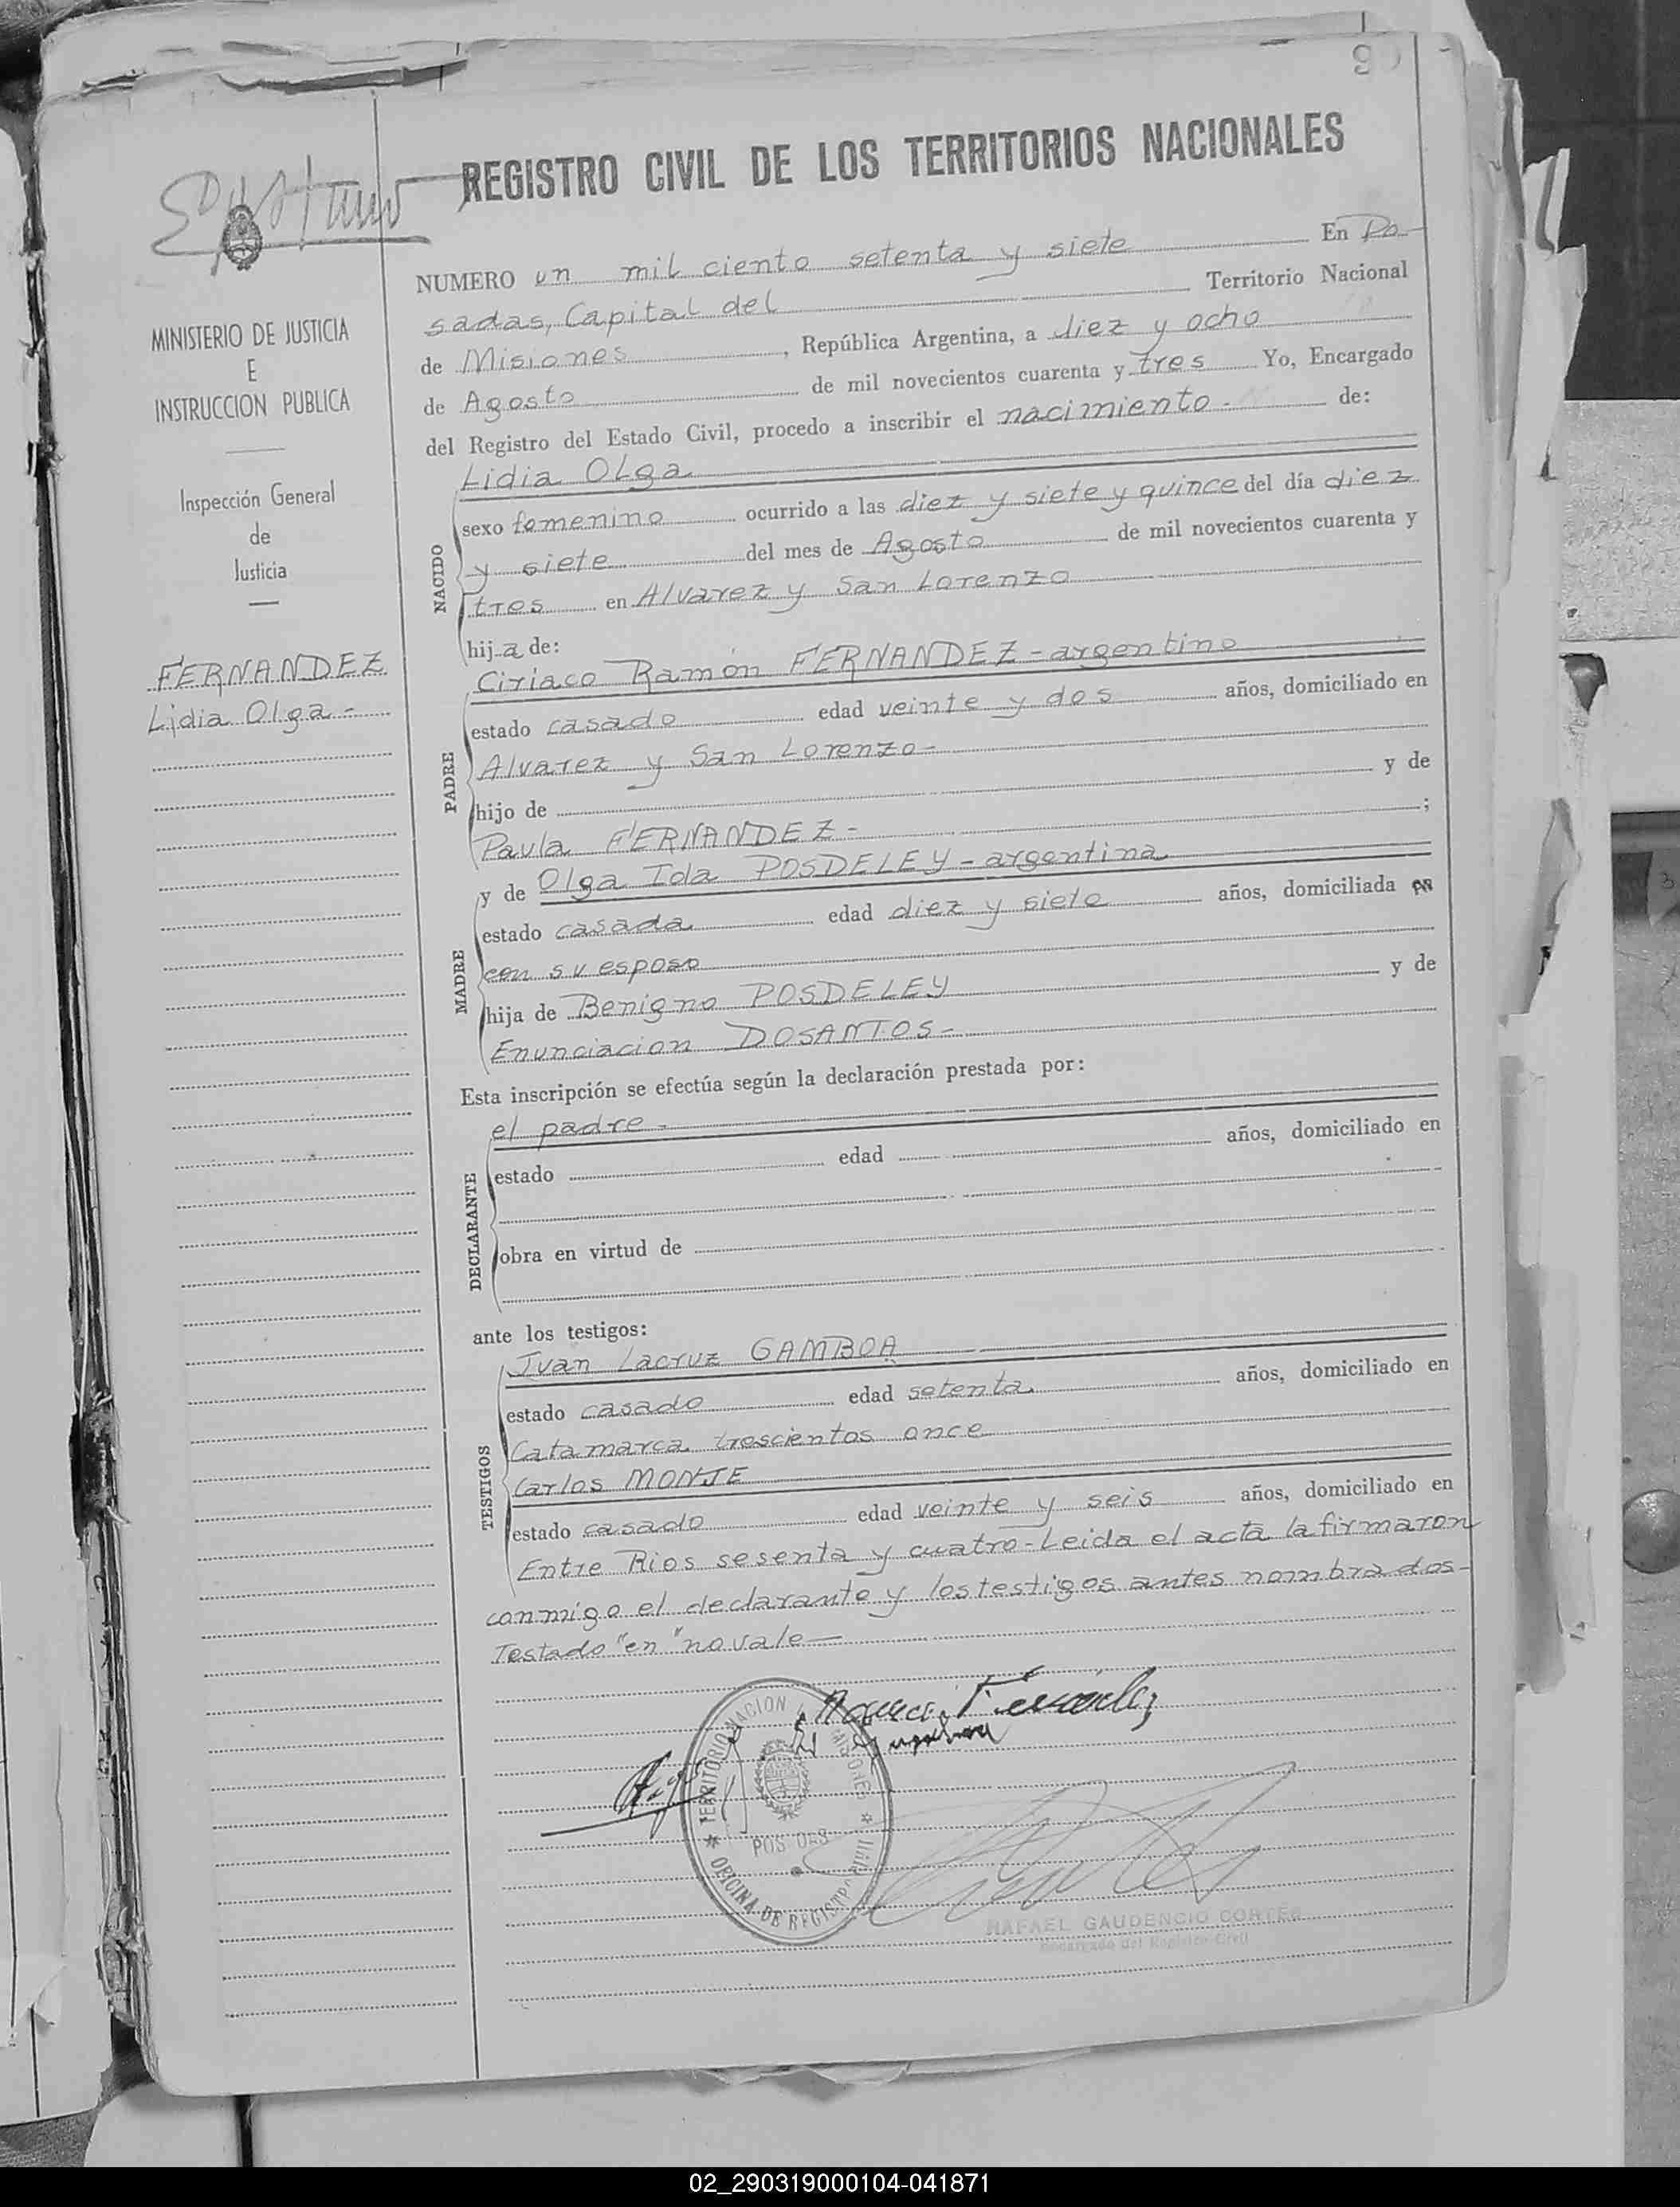 9
REGISTRO CIVIL DE LOS TERRITORIOS NACIONALES
MINISTERIO DE JUSTICIA
E
INSTRUCCION PUBLICA
Inspección General
de
Justicia
FERNANDEZ
Lidia Olga -
NUMERO un mil ciento setenta y siete En Po-
sadas, Capital del Territorio Nacional
de Misiones, República Argentina, a diez y ocho
de Agosto de mil novecientos cuarenta y tres Yo, Encargado
del Registro del Estado Civil, procedo a inscribir el nacimiento - de:
NACIDO
Lidia Olga
sexo femenino ocurrido a las diez y siete y quince del día diez
y siete del mes de Agosto de mil novecientos cuarenta y
tres en Alvarez y San Lorenzo
hija de:
PADRE
Ciriaco Ramón FERNANDEZ - argentino
estado casado edad veinte y dos años, domiciliado en
Alvarez y San Lorenzo -
hijo de y de
Paula FERNANDEZ - ;
MADRE
y de Olga Ida POSDELEY - argentina
estado casada edad diez y siete años, domiciliada en
con su esposo
hija de Benigno POSDELEY y de
Enunciacion DOSANTOS -
Esta inscripción se efectúa según la declaración prestada por:
DECLARANTE
el padre -
estado edad años, domiciliado en
obra en virtud de
ante los testigos:
TESTIGOS
Juan Lacruz GAMBOA
estado casado edad setenta años, domiciliado en
Catamarca trescientos once
Carlos MONJE
estado casado edad veinte y seis años, domiciliado en
Entre Rios sesenta y cuatro - Leida el acta la firmaron
conmigo el declarante y los testigos antes nombrados -
Testado "en" no vale —
TERRITORIO NACIONAL MISIONES
POSADAS
OFICINA DE REGISTRO
RAFAEL GAUDENCIO CORTES
Encargado del Registro Civil
02_290319000104-041871